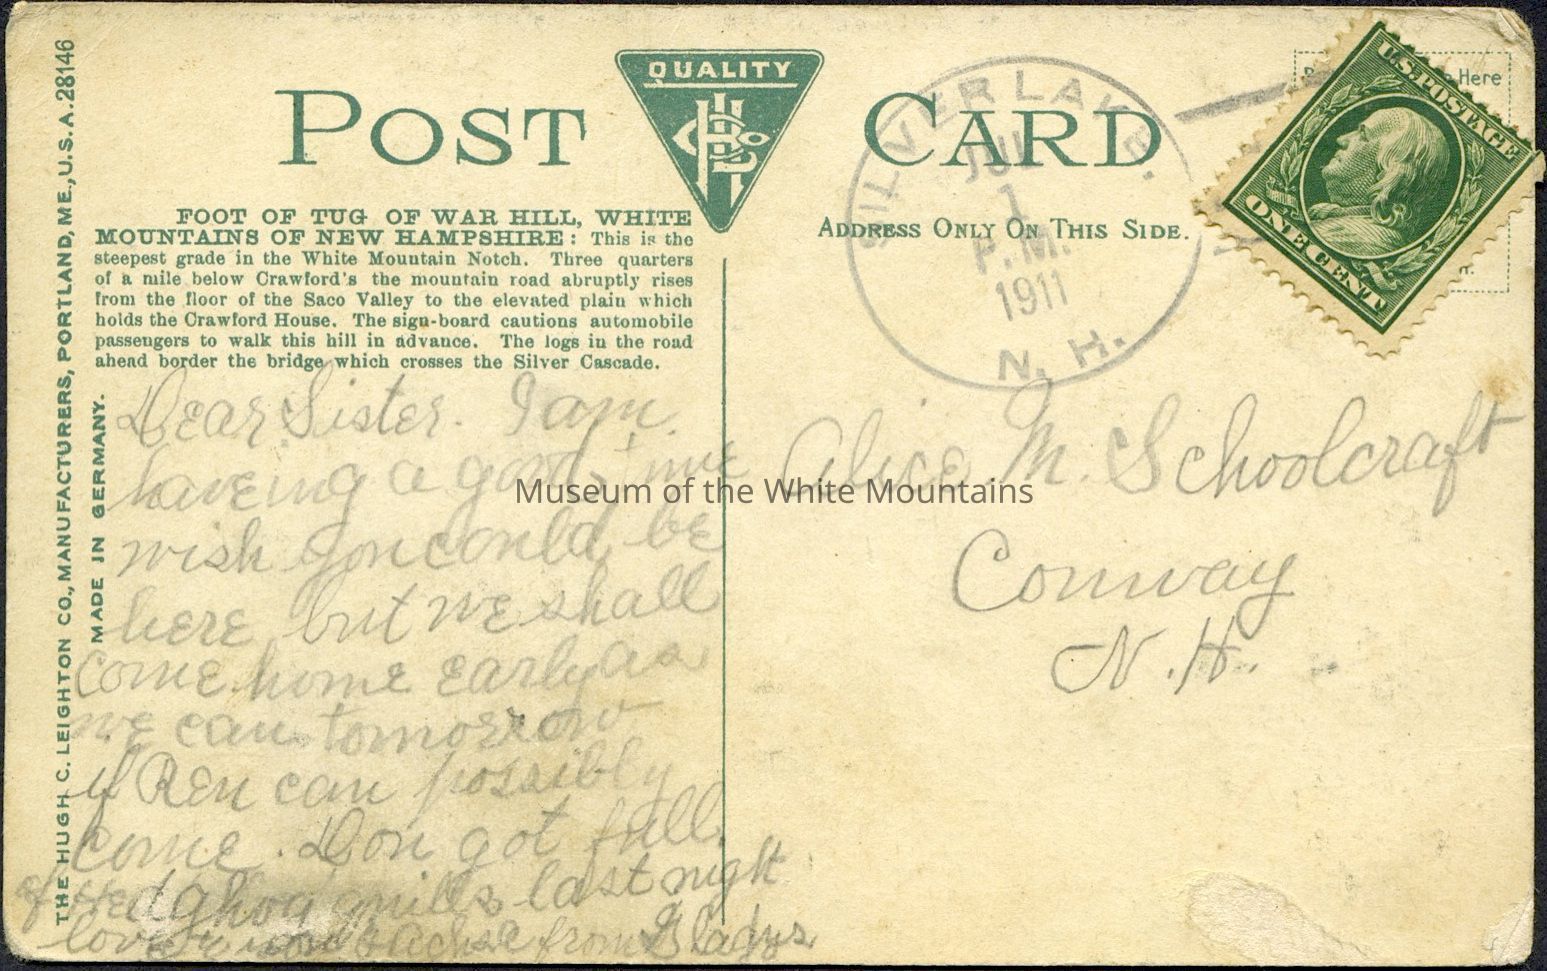 THE HUGH C. LEIGHTON CO., MANUFACTURERS, PORTLAND, ME., U.S.A. 28146
MADE IN GERMANY.
POST CARD
QUALITY
FOOT OF TUG OF WAR HILL, WHITE
MOUNTAINS OF NEW HAMPSHIRE: This is the
steepest grade in the White Mountain Notch. Three quarters
of a mile below Crawford's the mountain road abruptly rises
from the floor of the Saco Valley to the elevated plain which
holds the Crawford House. The sign-board cautions automobile
passengers to walk this hill in advance. The logs in the road
ahead border the bridge which crosses the Silver Cascade.
Dear Sister. I am
haveing a good time
wish you could be
here but we shall
come home early as
we can tomorrow
if Ren can possibly
come. Don got full
of Hedghog quills last night
love from Gladys
ADDRESS ONLY ON THIS SIDE.
SILVER LAKE.
JUL
1
P.M.
1911
N. H.
Here
U.S. POSTAGE
ONE CENT
Alice M. Schoolcraft
Conway
N.H.
Museum of the White Mountains